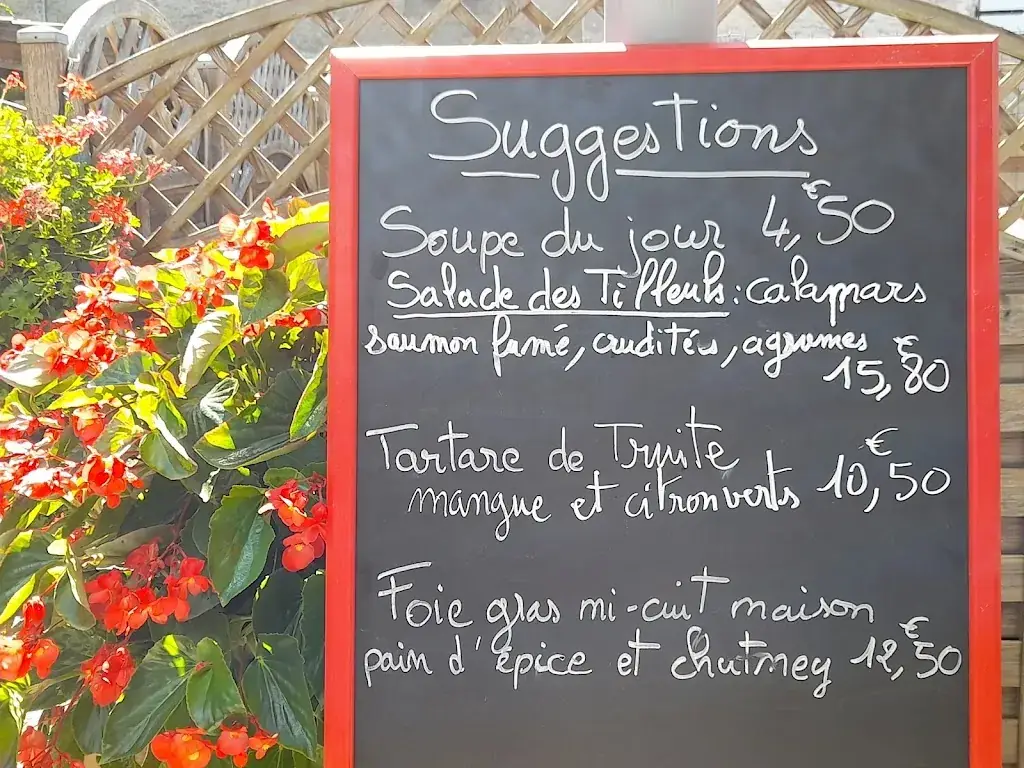 Suggestions
Soupe du jour 4,€50
Salade des Tilleuls : calamars
saumon fumé, crudités, agrumes
15,€80
Tartare de Truite
mangue et citron verts 10,€50
Foie gras mi-cuit maison
pain d'épice et chutney 12,€50